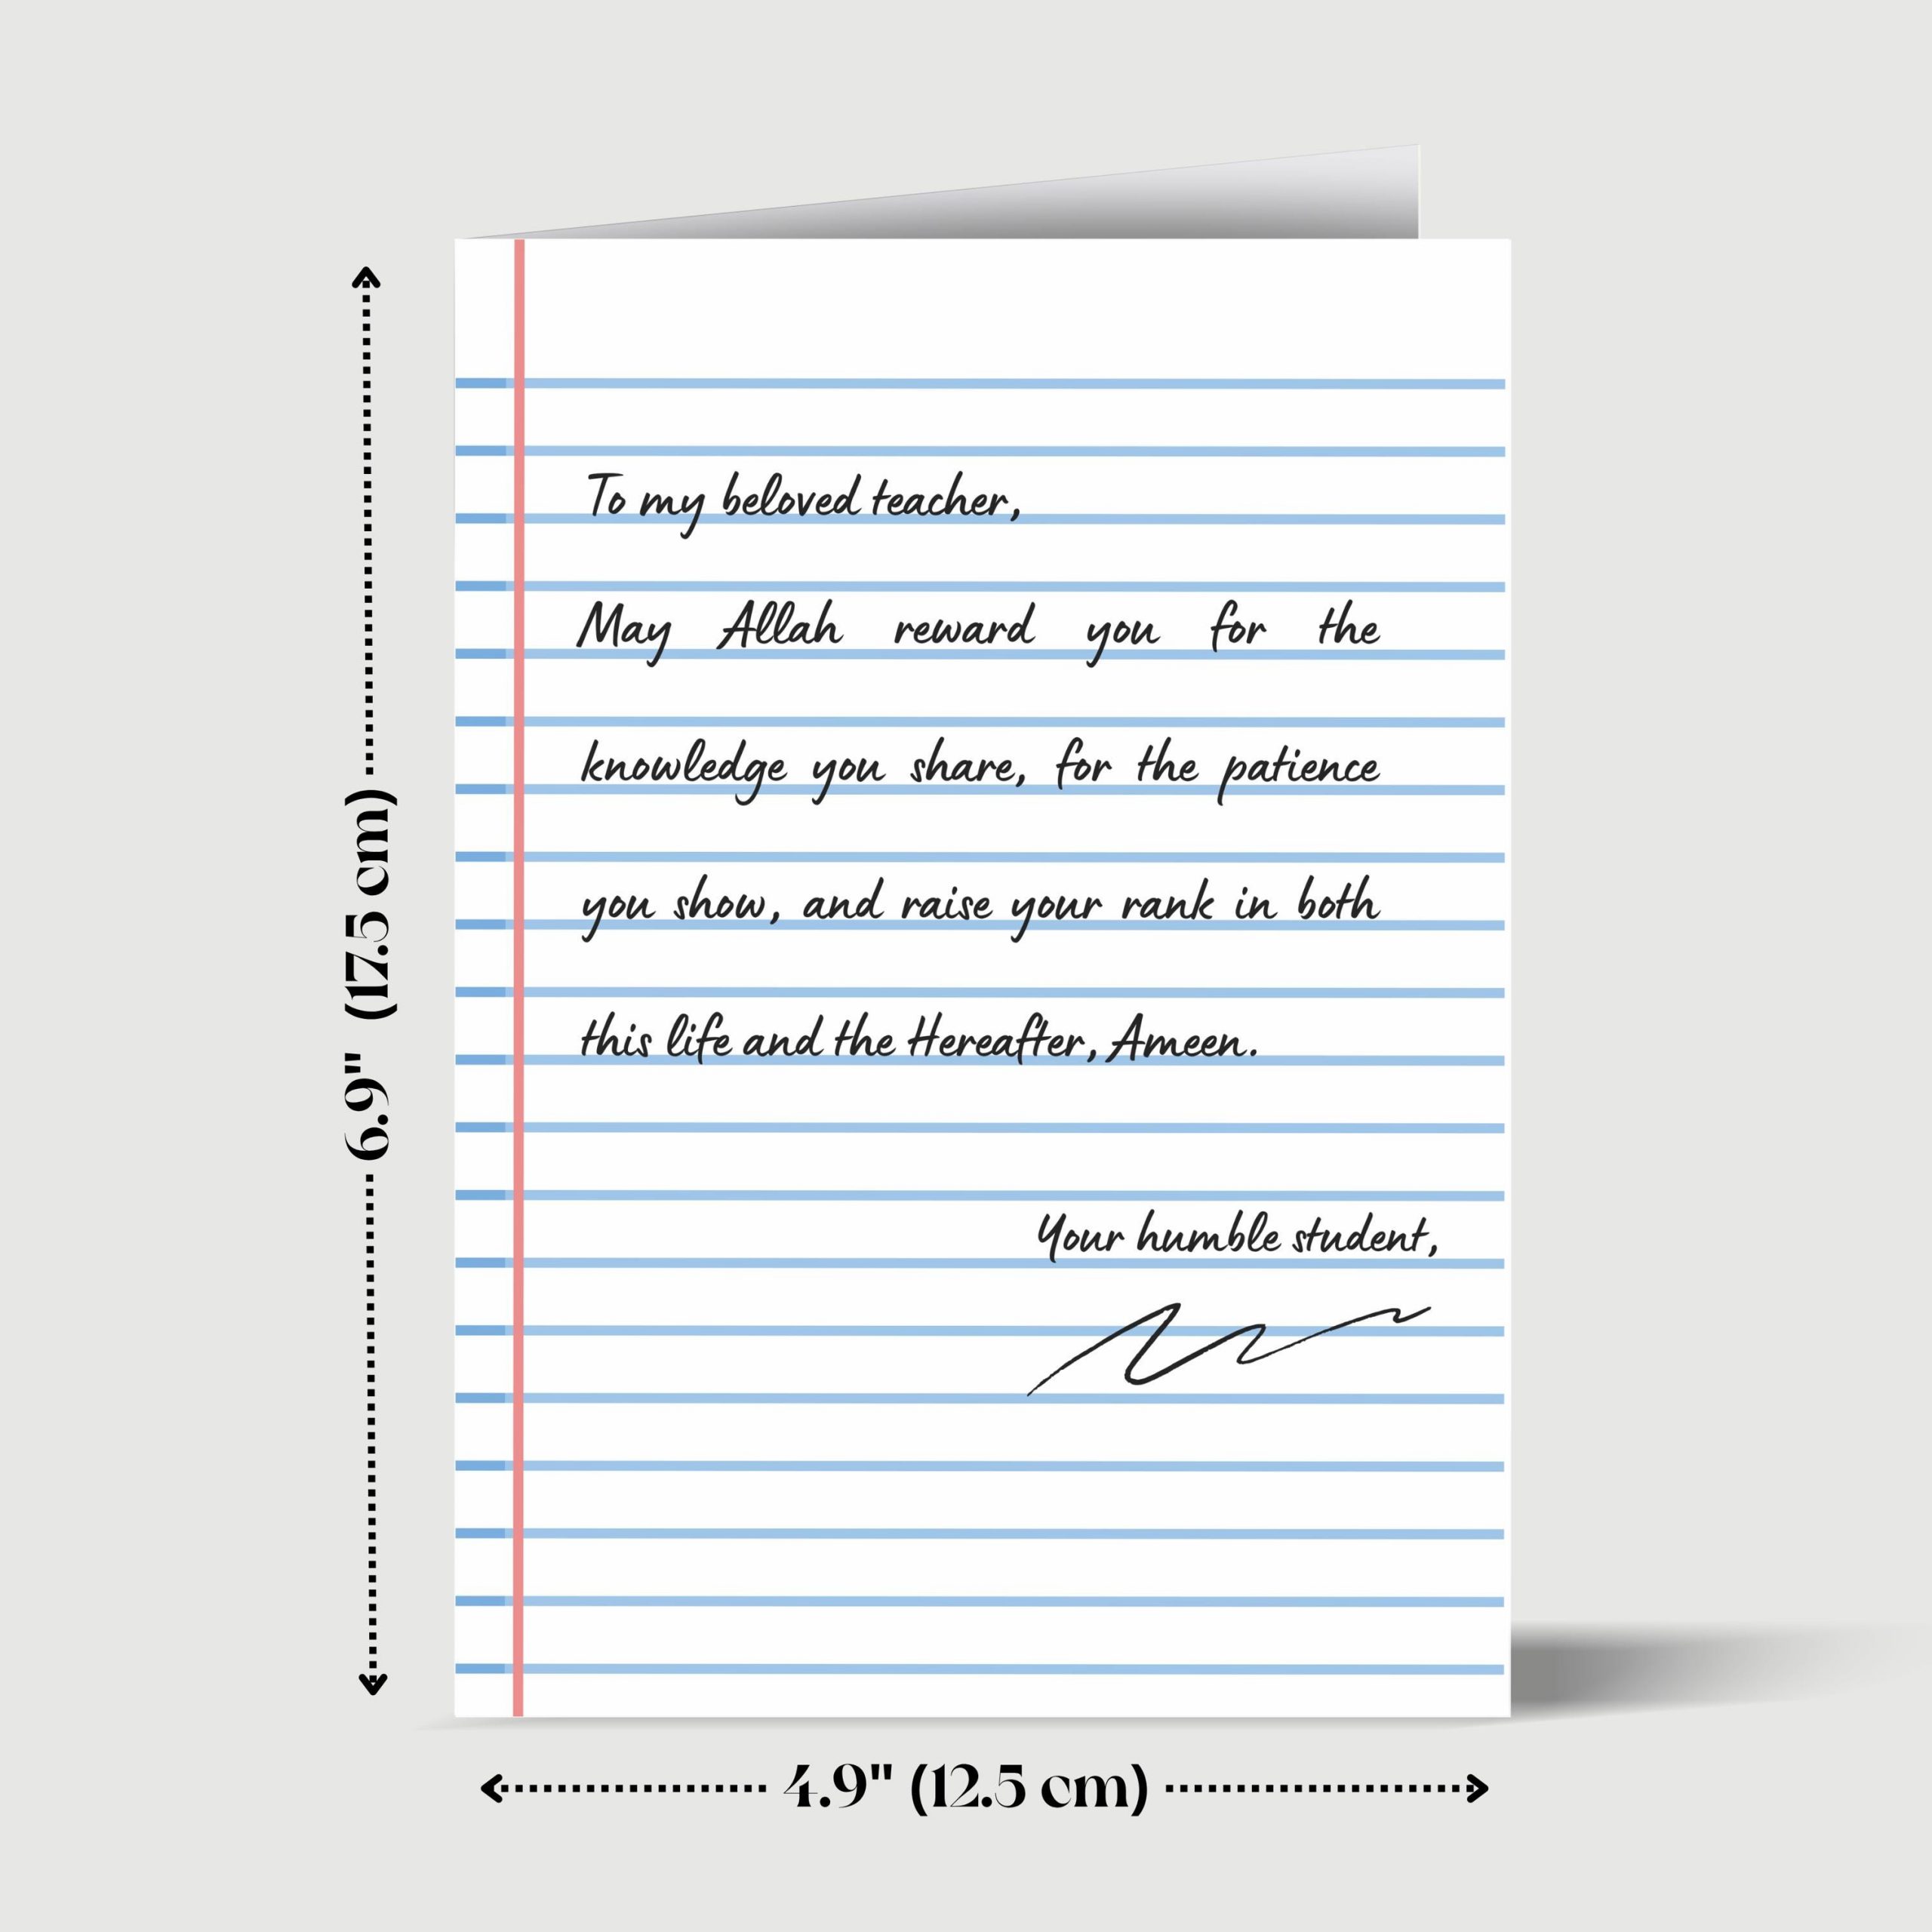 To my beloved teacher,
May Allah reward you for the
knowledge you share, for the patience
you show, and raise your rank in both
this life and the Hereafter, Ameen.
Your humble student,
6.9" (17.5 cm)
4.9" (12.5 cm)